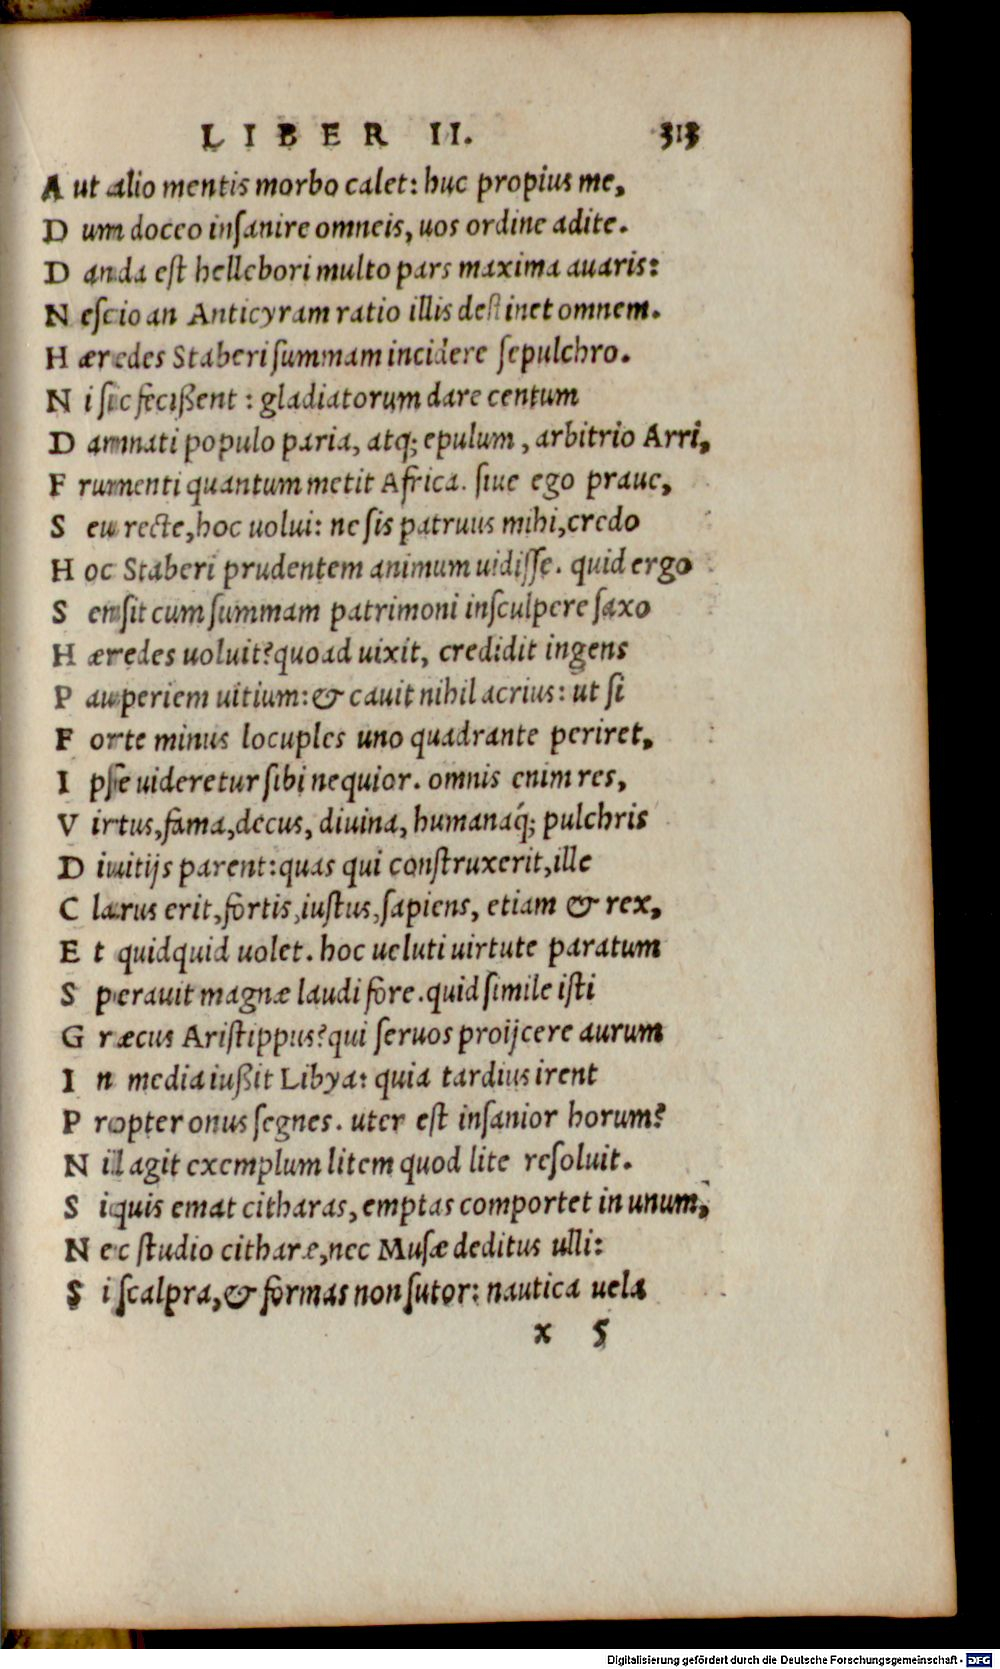 LIBER II. 313
Aut alio mentis morbo calet: huc propius me,
Dum doceo inſanire omneis, uos ordine adite.
Danda eſt hellebori multo pars maxima auaris:
Neſcio an Anticyram ratio illis deſtinet omnem.
Hæredes Staberi ſummam incidere ſepulchro.
Ni ſic feciſſent : gladiatorum dare centum
Damnati populo paria, atq; epulum, arbitrio Arri,
Frumenti quantum metit Africa. ſiue ego praue,
Seu recte, hoc uolui: ne ſis patruus mihi, credo
Hoc Staberi prudentem animum uidiſſe. quid ergo
Senſit cum ſummam patrimoni inſculpere ſaxo
Hæredes uoluit? quoad uixit, credidit ingens
Pauperiem uitium: & cauit nihil acrius: ut ſi
Forte minus locuples uno quadrante periret,
Ipſe uideretur ſibi nequior. omnis enim res,
Virtus, fama, decus, diuina, humanaq́; pulchris
Diuitijs parent: quas qui conſtruxerit, ille
Clarus erit, fortis, iuſtus, ſapiens, etiam & rex,
Et quidquid uolet. hoc ueluti uirtute paratum
Sperauit magnæ laudi fore. quid ſimile iſti
Græcus Ariſtippus? qui ſeruos proijcere aurum
In media iuſſit Libya: quia tardius irent
Propter onus ſegnes. uter eſt inſanior horum?
Nil agit exemplum litem quod lite reſoluit.
Si quis emat citharas, emptas comportet in unum,
Nec ſtudio citharæ, nec Muſæ deditus ulli:
Si ſcalpra, & formas non ſutor: nautica uela
x 5
Digitalisierung gefördert durch die Deutsche Forschungsgemeinschaft - DFG